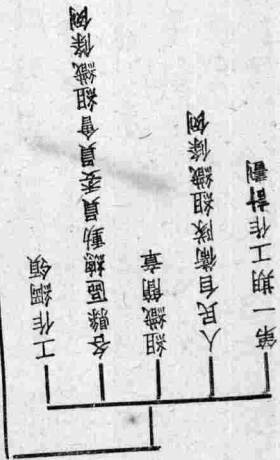 工作綱領
各縣區總動員委員會組織條例
組織簡章
人民自衛隊組織條例
第一期工作計劃